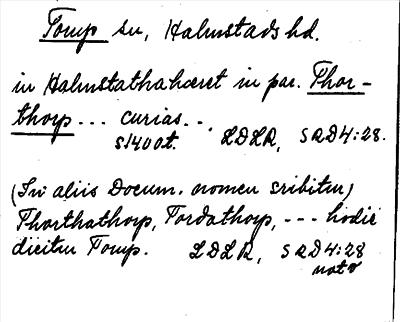 Tomp sn, Halmstads hd.
in Halmstathahæret in par. Thor-
thorp ... curias...
s1400t. LDLR, SRD4:28.
(In aliis Docum. nomen sribitur)
Thorthathorp, Tordathorp, --- hodie
dicitur Tomp. LDLR, SRD4:28